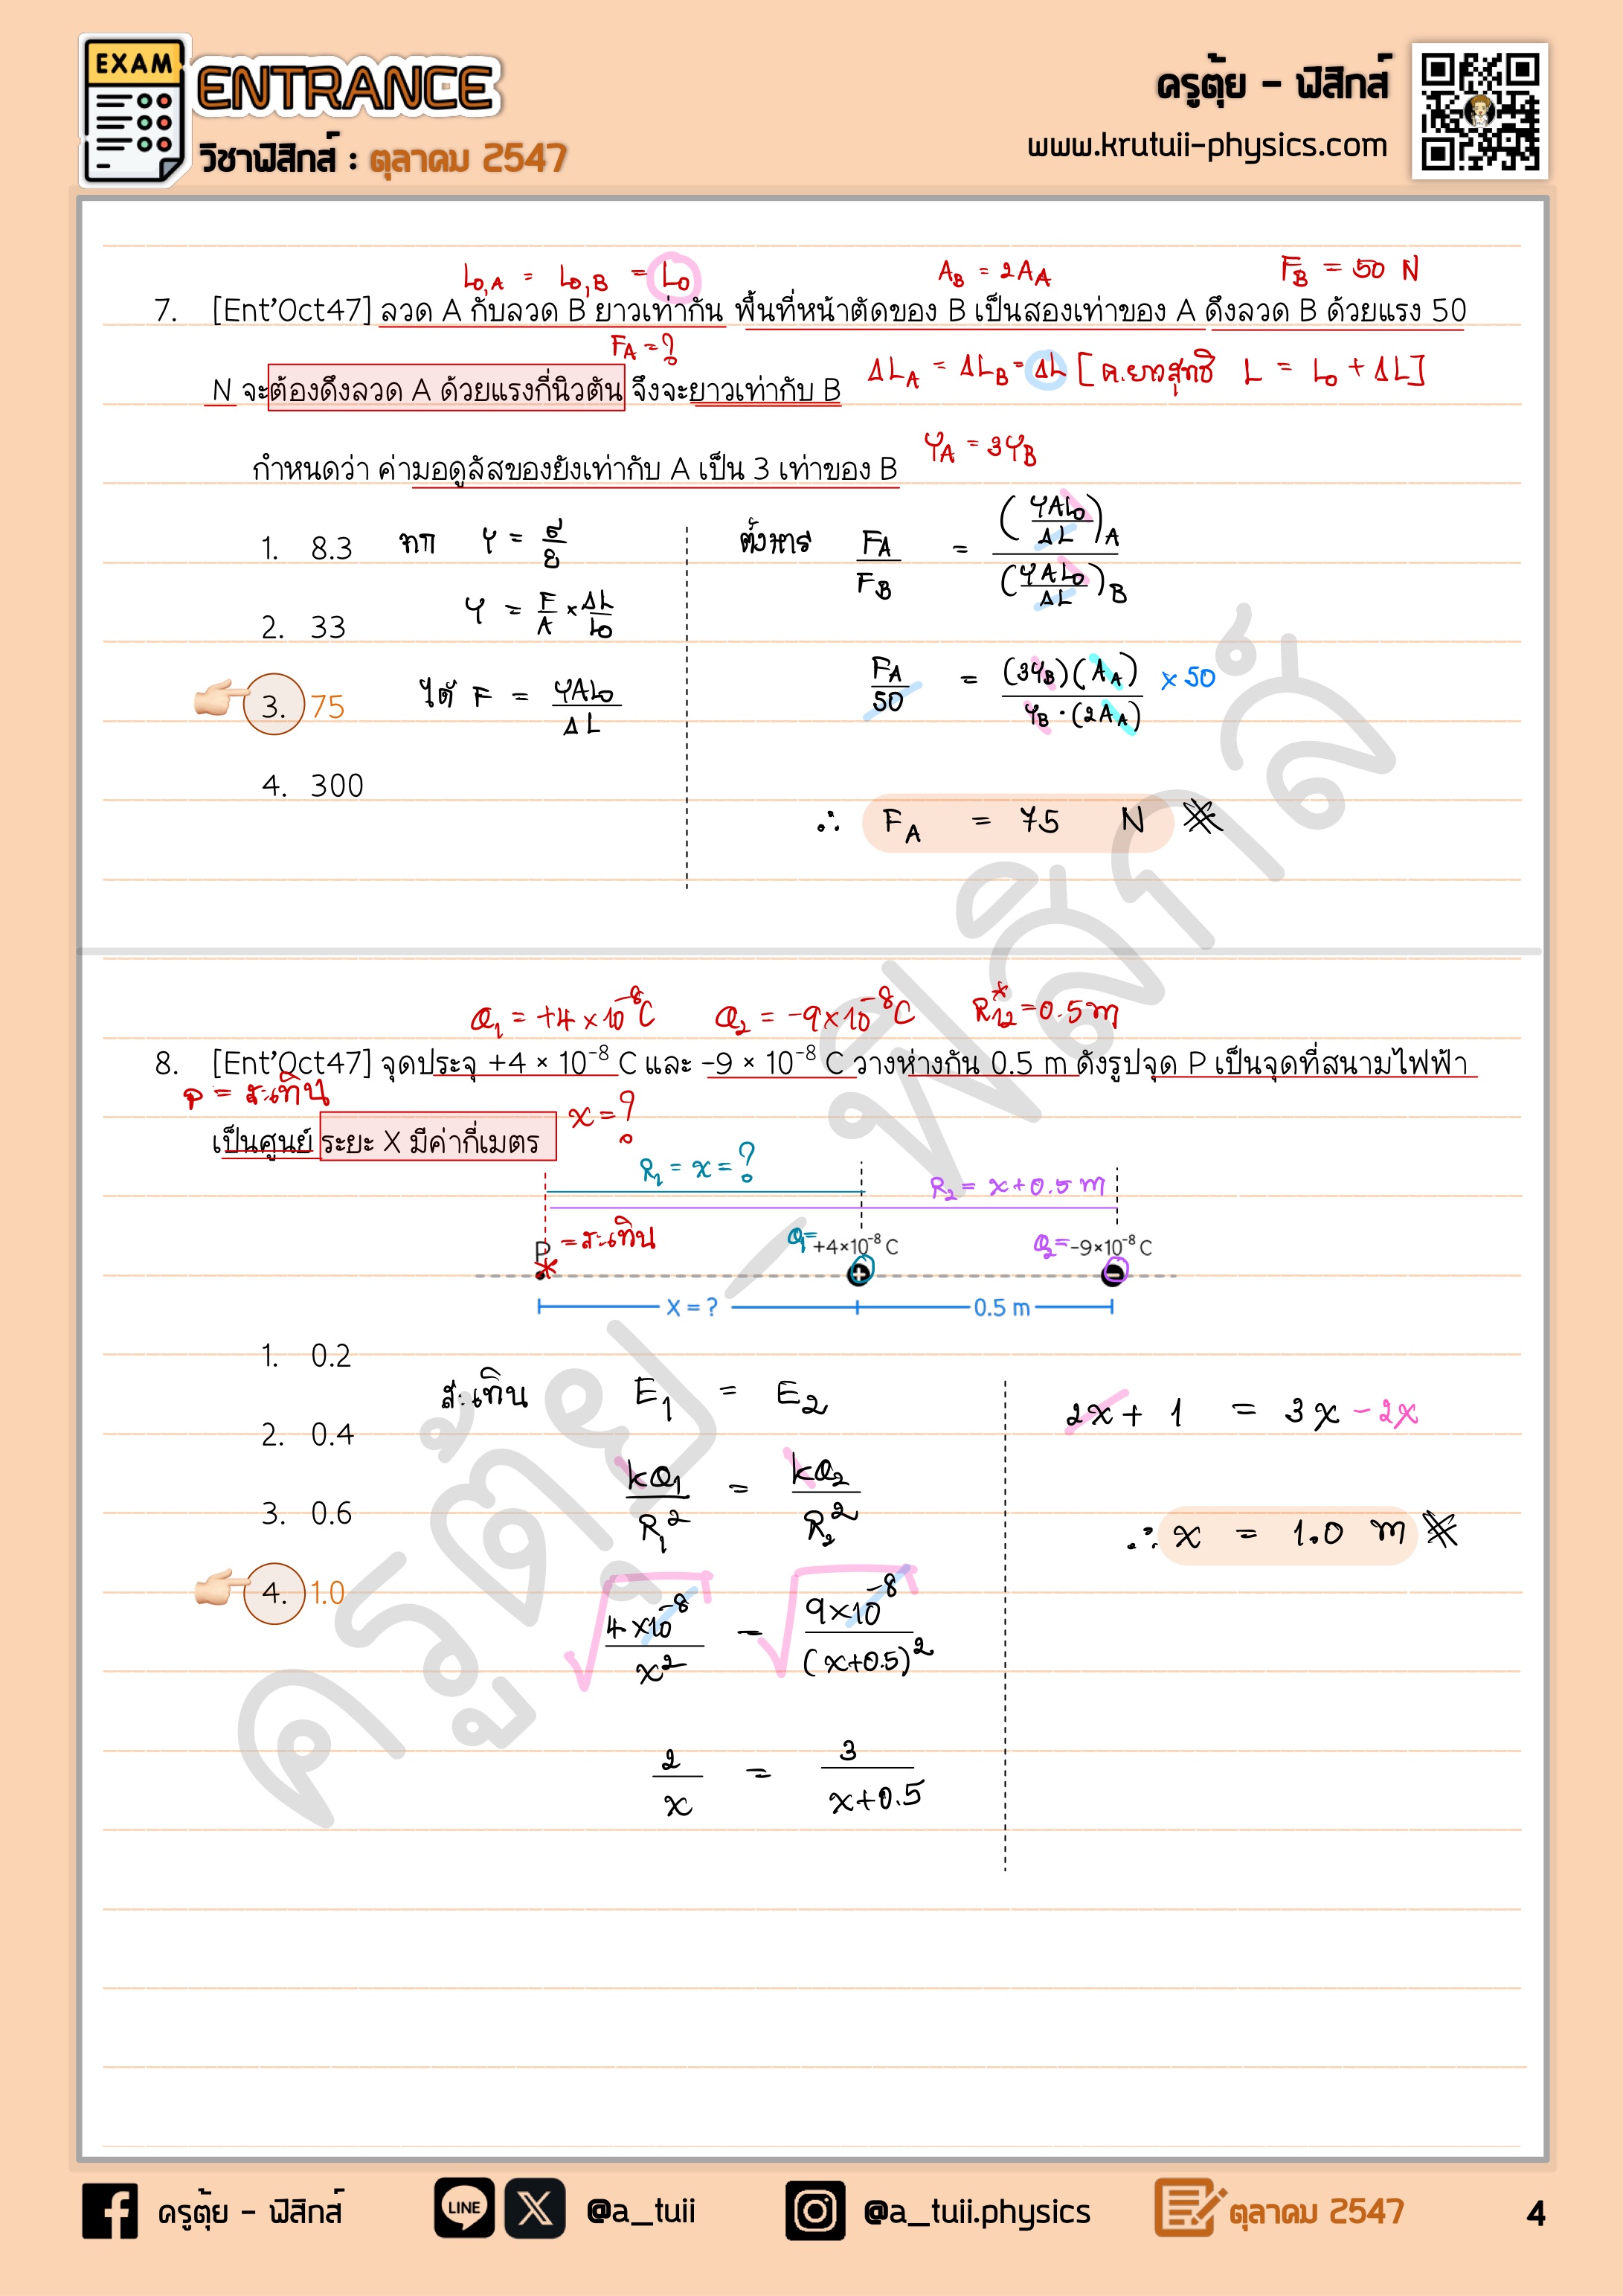 EXAM
ENTRANCE
วิชาฟิสิกส์ : ตุลาคม 2547
ครูตุ้ย - ฟิสิกส์
www.krutuii-physics.com
L0,A = L0,B = L0
AB = 2AA
FB = 50 N
7. [Ent'Oct47] ลวด A กับลวด B ยาวเท่ากัน พื้นที่หน้าตัดของ B เป็นสองเท่าของ A ดึงลวด B ด้วยแรง 50
FA = ?
N จะต้องดึงลวด A ด้วยแรงกี่นิวตัน จึงจะยาวเท่ากับ B
ΔLA = ΔLB = ΔL [ค.ยาวสุทธิ L = L0 + ΔL]
YA = 3YB
กำหนดว่า ค่ามอดูลัสของยังเท่ากับ A เป็น 3 เท่าของ B
1. 8.3
2. 33
3. 75
4. 300
จาก Y = σ/ε
Y = F/A × ΔL/L0
ได้ F = YAL0/ΔL
ตั้งหาร FA/FB = (YAL0/ΔL)A / (YAL0/ΔL)B
FA/50 = (3YB)(AA) / YB · (2AA) × 50
∴ FA = 75 N
Q1 = +4 × 10⁻⁸ C Q2 = -9×10⁻⁸ C R12* = 0.5 m
8. [Ent'Oct47] จุดประจุ +4 × 10⁻⁸ C และ -9 × 10⁻⁸ C วางห่างกัน 0.5 m ดังรูปจุด P เป็นจุดที่สนามไฟฟ้า
P = สะเทิน
เป็นศูนย์ ระยะ X มีค่ากี่เมตร
x = ?
R1 = x = ?
R2 = x+0.5 m
P = สะเทิน
Q1= +4×10⁻⁸ C
Q2= -9×10⁻⁸ C
X = ?
0.5 m
1. 0.2
2. 0.4
3. 0.6
4. 1.0
สะเทิน E1 = E2
kQ1/R1² = kQ2/R2²
√(4×10⁻⁸/x²) = √(9×10⁻⁸/(x+0.5)²)
2/x = 3/(x+0.5)
2x + 1 = 3x - 2x
∴ x = 1.0 m
ครูตุ้ย - ฟิสิกส์
ครูตุ้ย - ฟิสิกส์
LINE
@a_tuii
@a_tuii.physics
ตุลาคม 2547
4